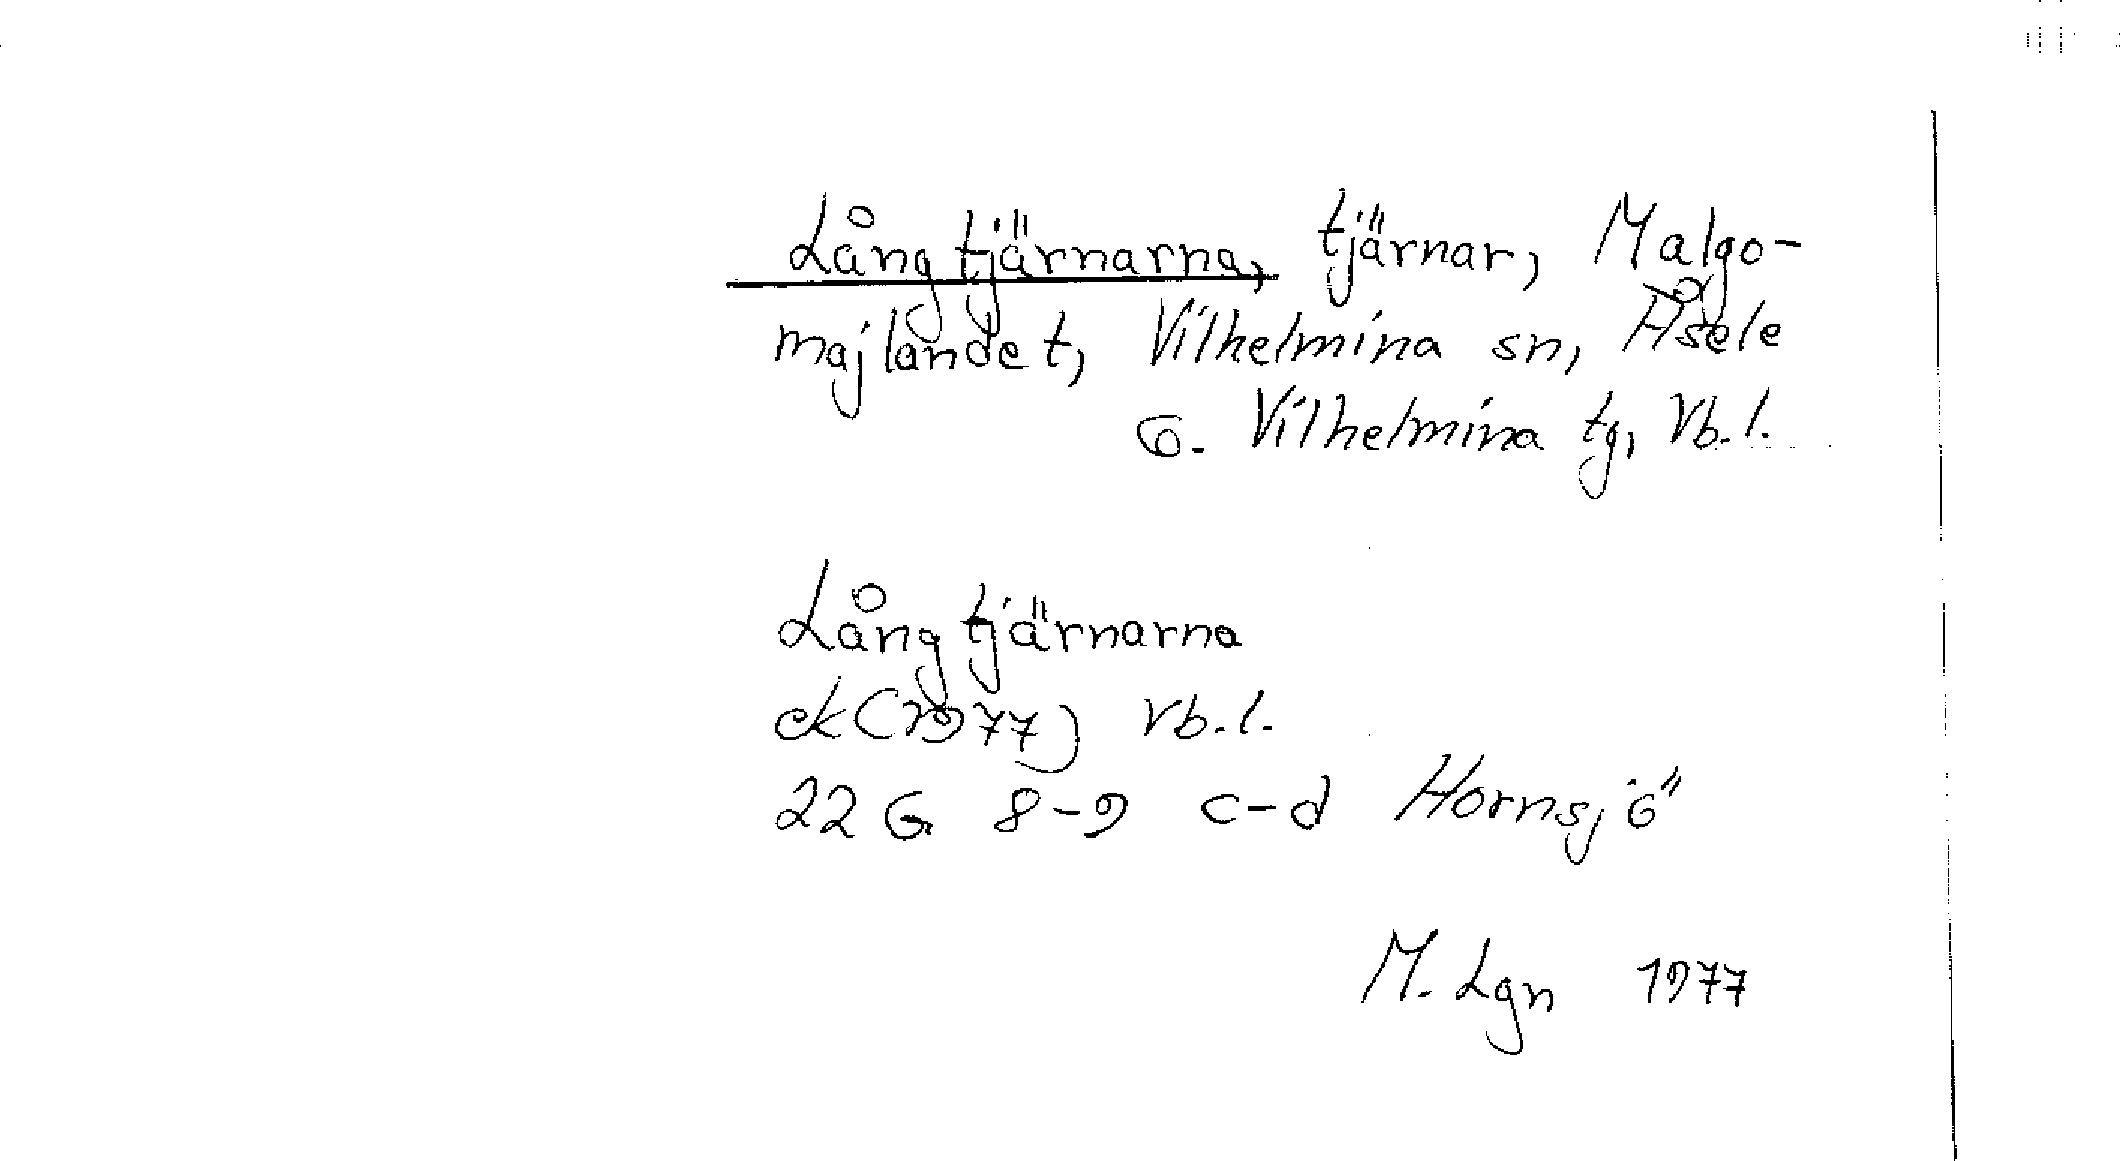 Långtjärnarna, tjärnar, Malgo-
majlandet, Vilhelmina sn, Åsele
o. Vilhelmina tg, Vb.l.
Långtjärnarna
ek (1977) Vb.l.
22 G 8-9 c-d Hornsjö
M. Lgn 1977